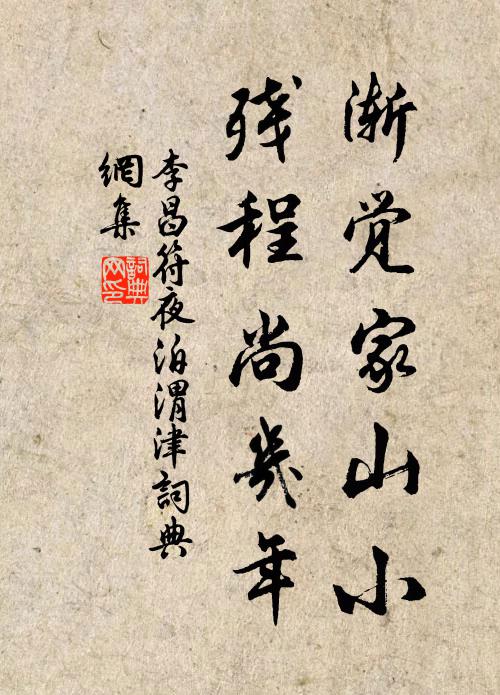 渐觉家山小
残程尚几年
李昌符夜泊渭津詞典
網集
詞典
网印